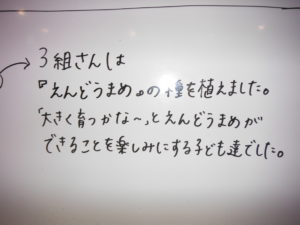 3組さんは
『えんどうまめ』の種を植えました。
「大きく育つかな～」とえんどうまめが
できることを楽しみにする子ども達でした。